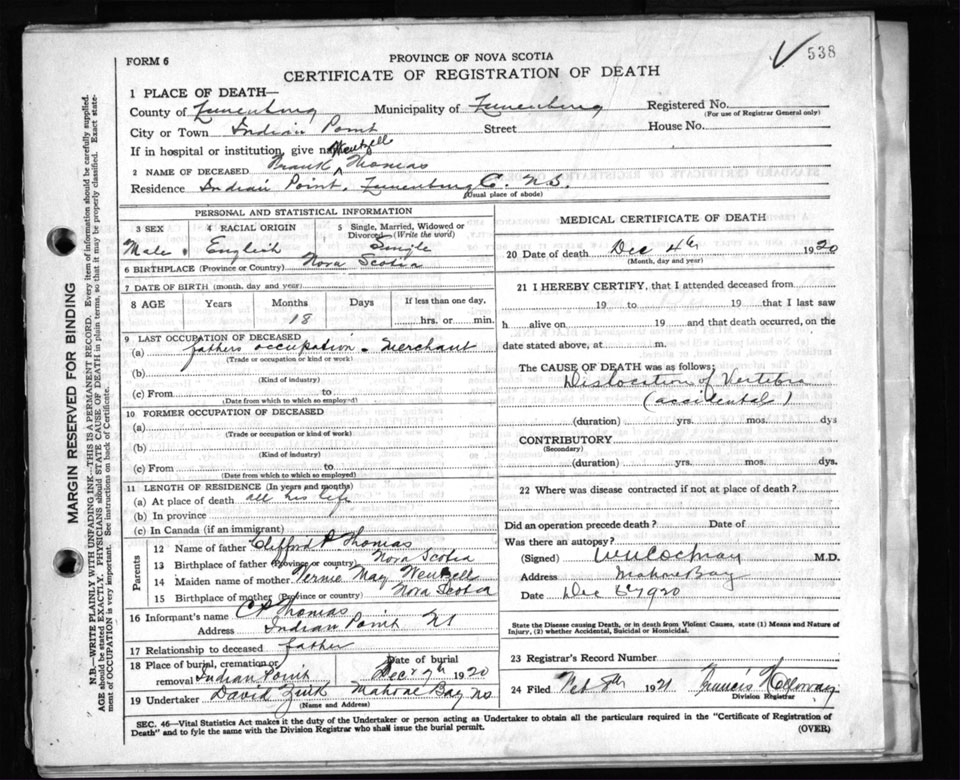 538
FORM 6
PROVINCE OF NOVA SCOTIA
CERTIFICATE OF REGISTRATION OF DEATH
1 PLACE OF DEATH—
County of Lunenburg Municipality of Lunenburg Registered No.
(For use of Registrar General only)
City or Town Indian Point Street House No.
If in hospital or institution, give name
Wentzell
2 NAME OF DECEASED Frank ^ Thomas
Residence Indian Point, Lunenburg C. N.S.
(Usual place of abode)
PERSONAL AND STATISTICAL INFORMATION
3 SEX 4 RACIAL ORIGIN 5 Single, Married, Widowed or Divorced (Write the word)
Male. English Single
6 BIRTHPLACE (Province or Country) Nova Scotia
7 DATE OF BIRTH (month, day and year)
8 AGE Years Months Days If less than one day,
18 hrs. or min.
9 LAST OCCUPATION OF DECEASED
(a) fathers occupation. Merchant
(Trade or occupation or kind of work)
(b)
(Kind of industry)
(c) From to
(Date from which to which so employed)
10 FORMER OCCUPATION OF DECEASED
(a)
(Trade or occupation or kind of work)
(b)
(Kind of industry)
(c) From to
(Date from which to which so employed)
11 LENGTH OF RESIDENCE (In years and months)
(a) At place of death all his life
(b) In province
(c) In Canada (if an immigrant)
Parents
12 Name of father Clifford P. Thomas
13 Birthplace of father (Province or country) Nova Scotia
14 Maiden name of mother Vernie May Wentzell
15 Birthplace of mother (Province or country) Nova Scotia
16 Informant's name C P Thomas
Address Indian Point NS
17 Relationship to deceased father
18 Place of burial, cremation or removal Indian Point Date of burial Dec 7th 1920
19 Undertaker David Zink Mahone Bay NS
(Name and Address)
MEDICAL CERTIFICATE OF DEATH
20 Date of death Dec 4th 1920
(Month, day and year)
21 I HEREBY CERTIFY, that I attended deceased from
19 to 19 that I last saw
h alive on 19 and that death occurred, on the
date stated above, at m.
The CAUSE OF DEATH was as follows:
Dislocation of Vertebra
(accidental)
(duration) yrs. mos. dys
CONTRIBUTORY
(Secondary)
(duration) yrs. mos. dys.
22 Where was disease contracted if not at place of death?
Did an operation precede death? Date of
Was there an autopsy?
(Signed) W N Cochran M.D.
Address Mahone Bay
Date Dec 1920
State the Disease causing Death, or in death from Violent Causes, state (1) Means and Nature of Injury, (2) whether Accidental, Suicidal or Homicidal.
23 Registrar's Record Number
24 Filed Feb 8th 1921 Francis Holloway
Division Registrar
SEC. 46—Vital Statistics Act makes it the duty of the Undertaker or person acting as Undertaker to obtain all the particulars required in the "Certificate of Registration of
Death" and to fyle the same with the Division Registrar who shall issue the burial permit.
(OVER)
MARGIN RESERVED FOR BINDING
N.B.—WRITE PLAINLY WITH UNFADING INK—THIS IS A PERMANENT RECORD. Every item of information should be carefully supplied.
AGE should be stated EXACTLY. PHYSICIANS should STATE CAUSE OF DEATH in plain terms, so that it may be properly classified. Exact statement of OCCUPATION is very important. See instructions on back of Certificate.